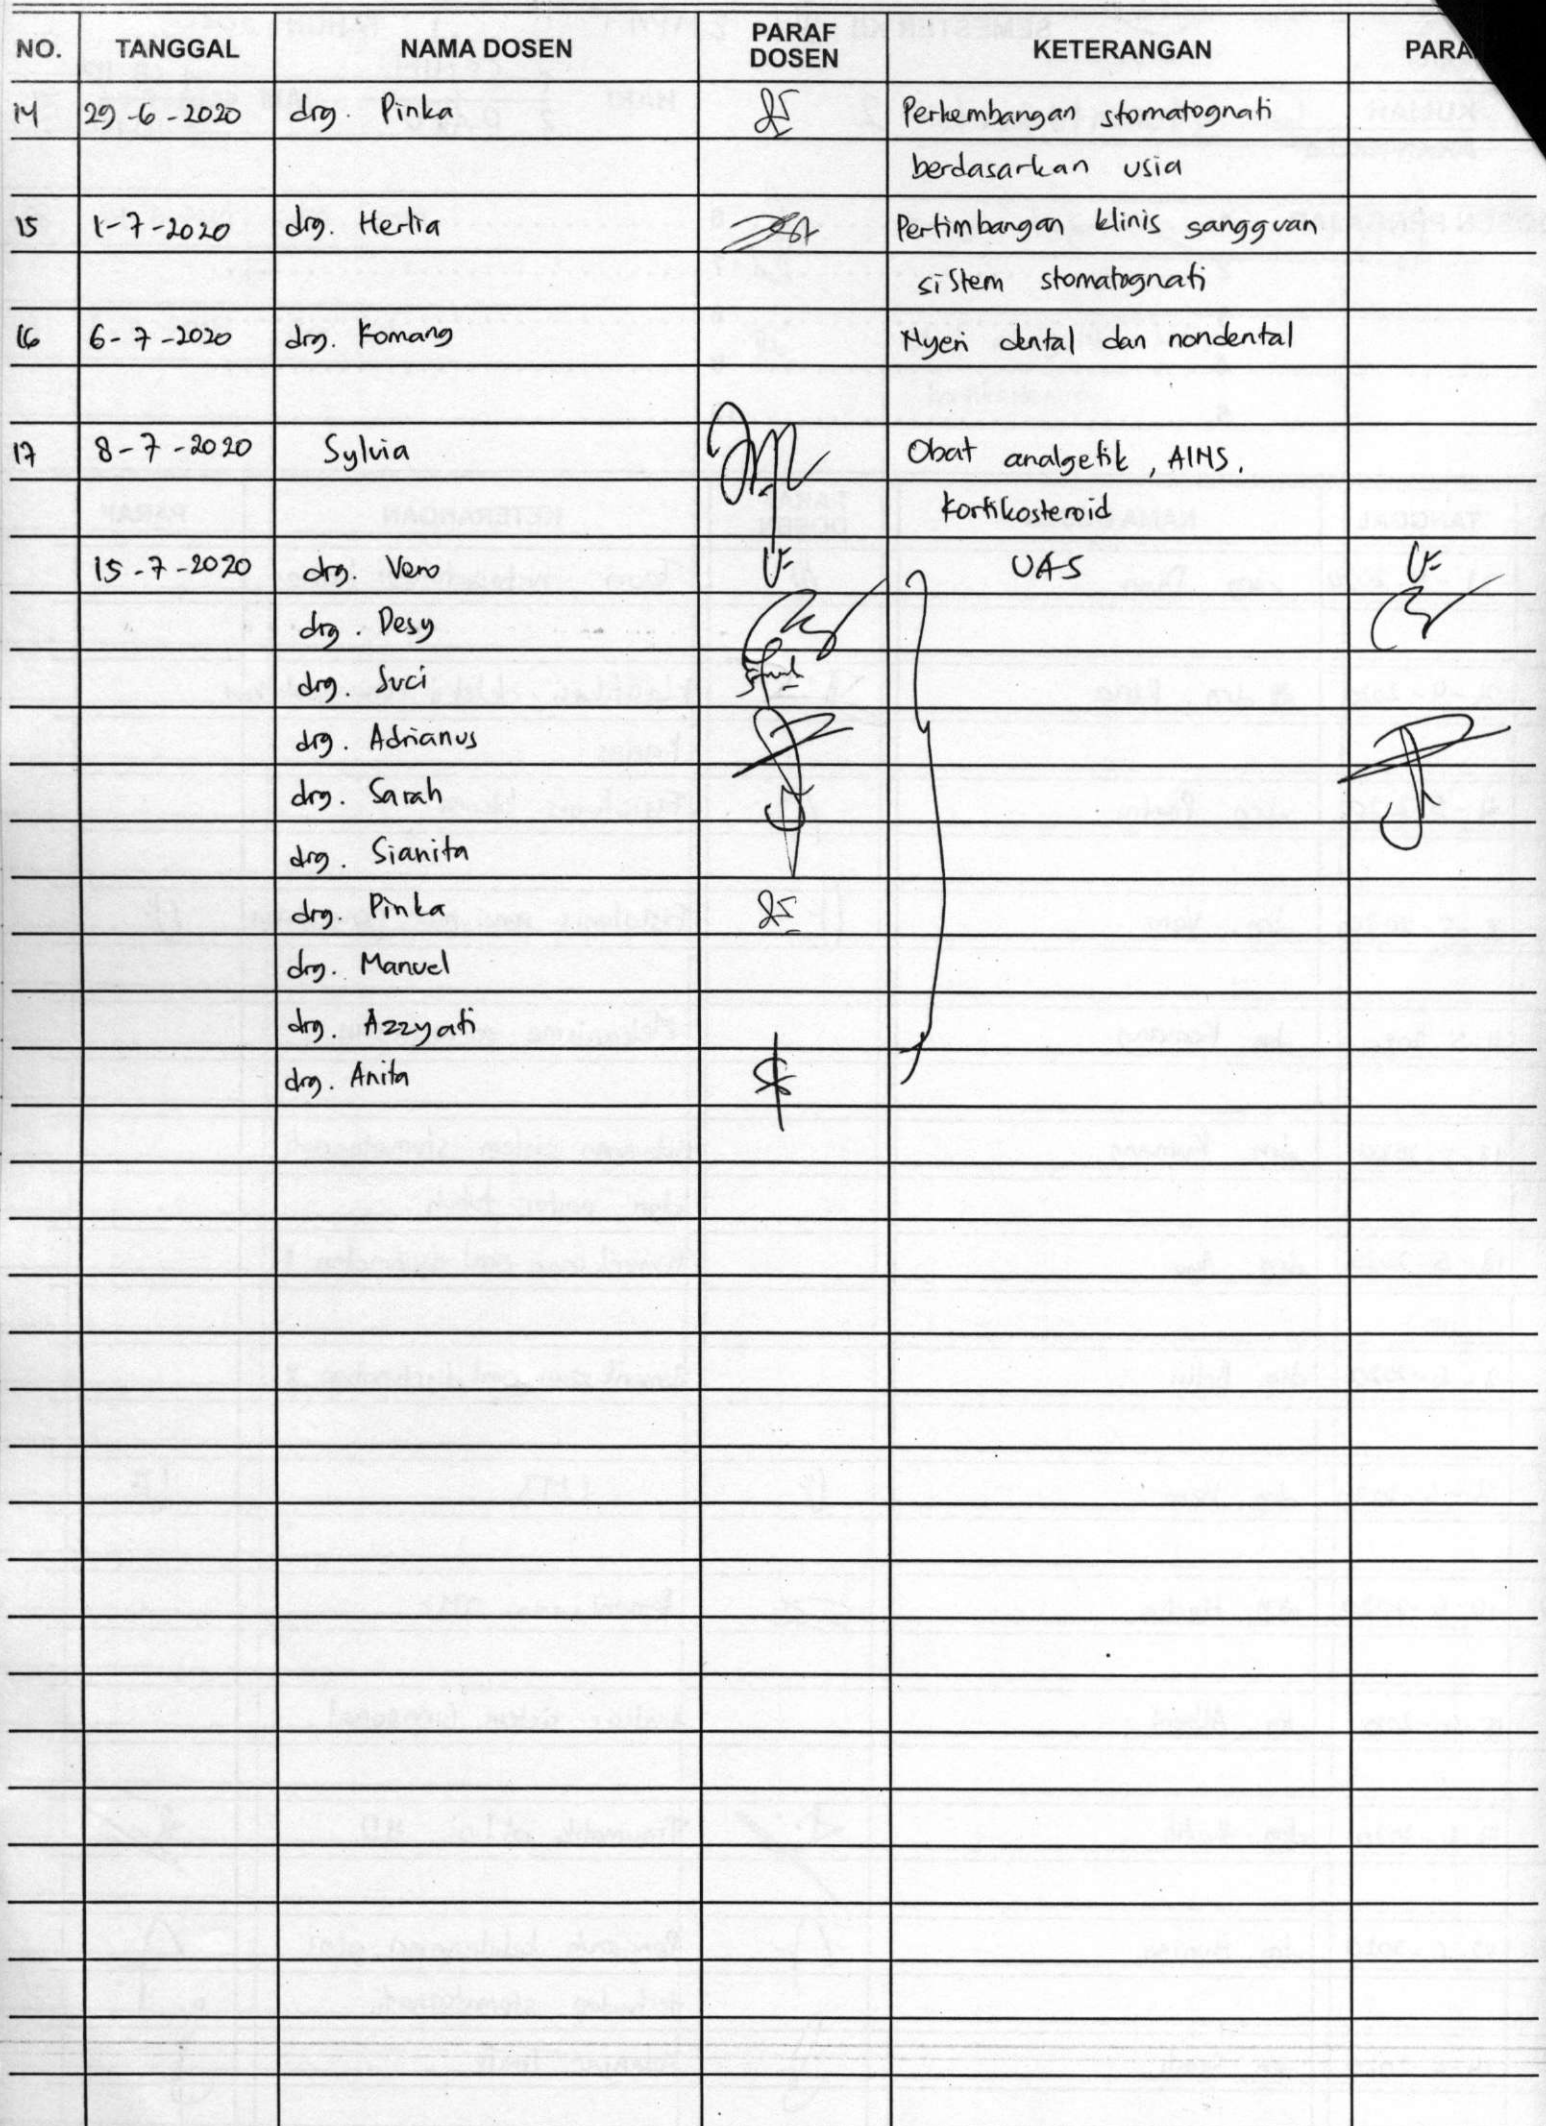 NO. TANGGAL NAMA DOSEN PARAF DOSEN KETERANGAN PARA
14 29-6-2020 drg. Pinka Perkembangan stomatognati
berdasarkan usia
15 1-7-2020 drg. Herlia Pertimbangan klinis sangguan
sistem stomatognati
16 6-7-2020 drg. Komang Nyeri dental dan nondental
17 8-7-2020 Sylvia Obat analgetik, AINS,
kortikosteroid
15-7-2020 drg. Vero UAS
drg. Desy
drg. Suci
drg. Adrianus
drg. Sarah
drg. Sianita
drg. Pinka
drg. Manuel
drg. Azzyati
drg. Anita